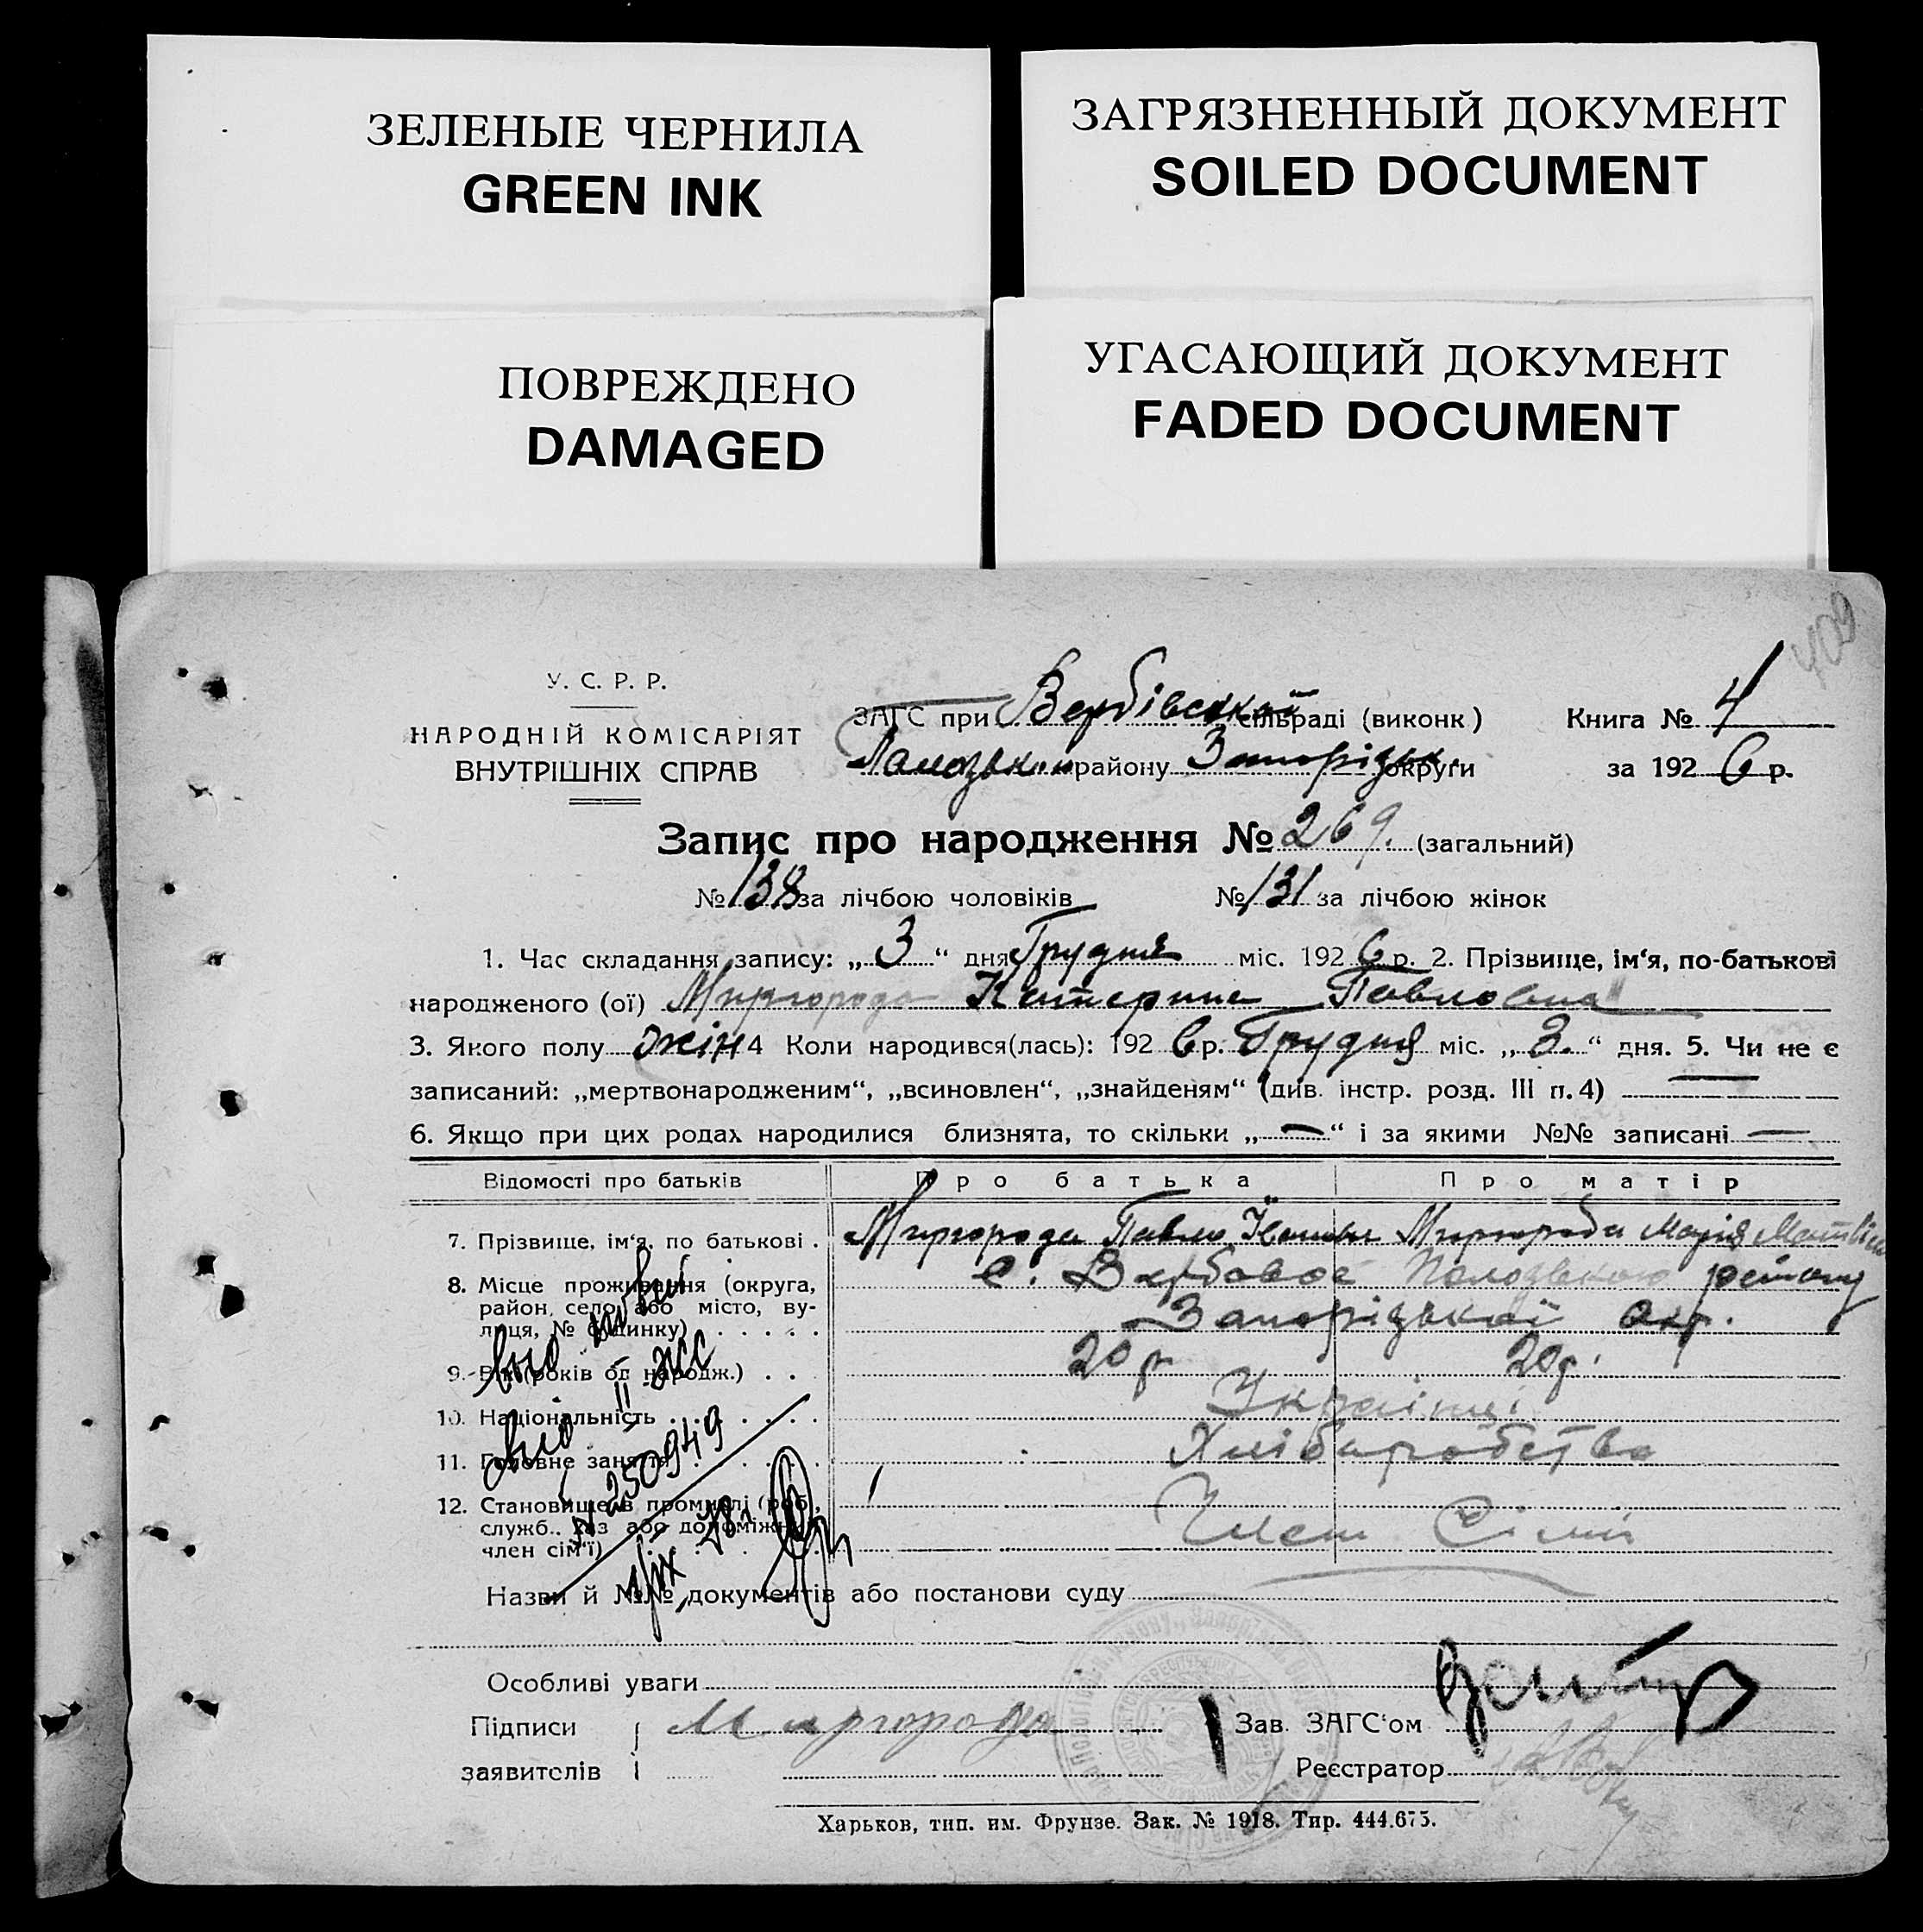 ЗЕЛЕНЫЕ ЧЕРНИЛА
GREEN INK
ЗАГРЯЗНЕННЫЙ ДОКУМЕНТ
SOILED DOCUMENT
ПОВРЕЖДЕНО
DAMAGED
УГАСАЮЩИЙ ДОКУМЕНТ
FADED DOCUMENT
409
У. С. Р. Р.
НАРОДНІЙ КОМІСАРІЯТ
ВНУТРІШНІХ СПРАВ
ЗАГС при Вербівській сільраді (виконк)
району Запорізьк. округи
Книга № 4
за 1926 р.
Запис про народження № 269. (загальний)
№ 138 за лічбою чоловіків № 131 за лічбою жінок
1. Час складання запису: „3“ дня Грудня міс. 1926 р. 2. Прізвище, ім‘я, по-батькові
народженого (ої) Миргорода Катерина Павловна
3. Якого полу жін 4 Коли народився(лась): 1926 р. Грудня міс. „3.“ дня. 5. Чи не є
записаний: „мертвонародженим“, „всиновлен“, „знайденям“ (див. інстр. розд. III п. 4) —
6. Якщо при цих родах народилися близнята, то скільки „—“ і за якими №№ записані —
Відомості про батьків Про батька Про матір
7. Прізвище, ім‘я, по батькові . Миргорода Павло Миргорода Марія
8. Місце проживання (округа, район, село або місто, вулиця, № будинку) с. Вербовое району
Запорізької окр.
9. Вік (років од народж.) . . 20 р. 20 р.
10. Національність . . . . . Українці
11. Головне заняття . . . . . Хліборобство
12. Становище в промислі (роб.,
служб., хаз або допоміжн.
член сім‘ї) Член сімї
№ 250949
Назви й №№ документів або постанови суду
Особливі уваги
Підписи Миргорода Зав. ЗАГС‘ом
заявителів Реєстратор
Харьков, тип. им. Фрунзе. Зак. № 1918. Тир. 444.675.